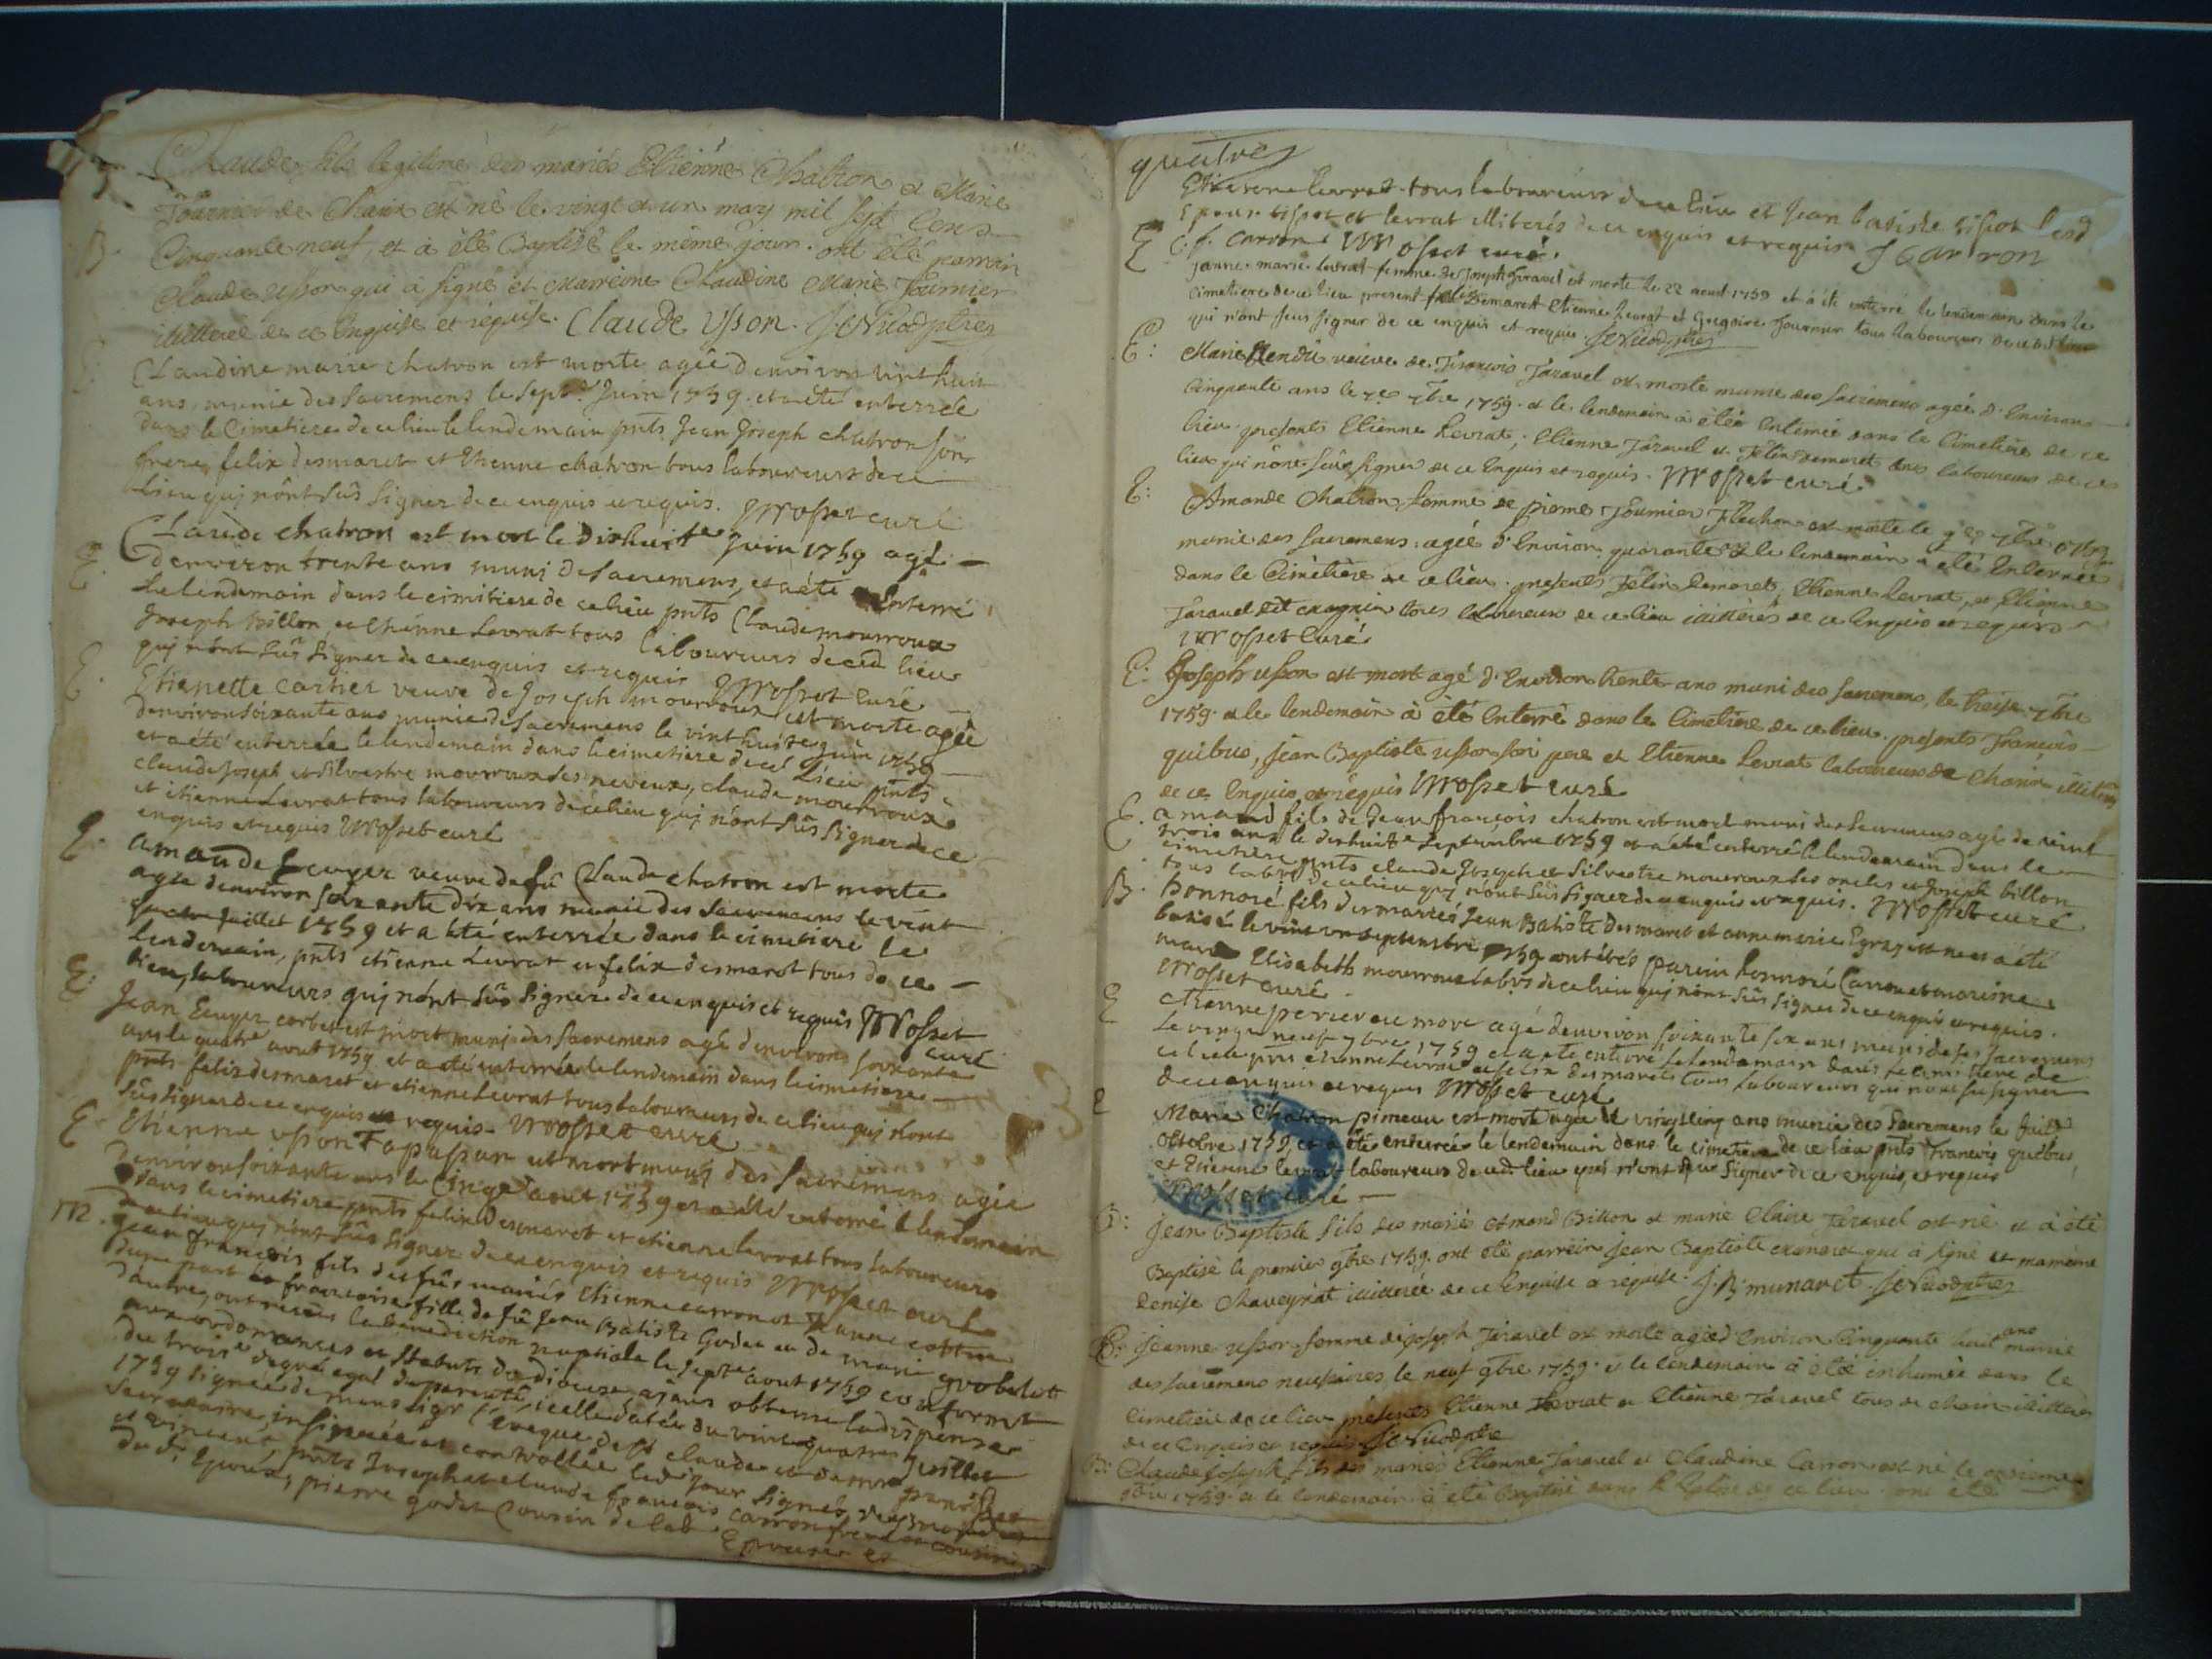 Claude fils legitime des mariés Etienne Chatron et Marie
Fournier de Choux est né le vingt et un may mil sept Cens
B. Cinquante neuf, et à été Baptisé le même jour. ont été parrain
Claude Usson qui à signé et Marreine Claudine Marie Fournier
illitteré de ce Enquise et réquise. Claude Usson. J Nicod ptres
Claudine marie chatron est morte agée denviron vint huit
ans, munie des Sacremens le Sept.e Juin 1759. et a été enterrée
dans le Cimetiere de ce lieu le lendemain pnts Jean Joseph chatron son
frere, felix desmaret et Etienne chatron tous laboureurs de ce
Lieu qui n'ont sûs signer de ce enquis et requis. Mosset curé
E. Claude chatron est mort le Dix huite Juin 1759 agé
denviron trente ans muni de Sacremens, et a été Enterré
Le lendemain dans le cimitiere de ce lieu pnts Claude mourroux
Joseph billon et Etienne Levrat tous laboureurs de ced lieu
qui n'ont sûs signer de ce enquis et requis Mosset curé
E. Etienette cartier veuve de Joseph mourroux est morte agée
denviron soixante ans munie de Sacremens le vint huite Juin 1759
et a été enterrée le lendemain dans le cimetiere de ce Lieu pnts
claude Joseph et Silvestre mourroux ses neveux, claude mourroux
et etienne Levrat tous laboureurs de ce lieu qui n'ont sûs signer de ce
enquis et requis Mosset curé
E. amande Ecuyer veuve de fû Claude chatron est morte
agée denviron soixante dix ans munie des Sacremens le vint
Juillet 1759 et a été enterrée dans le cimetiere le
lendemain, pnts etienne Levrat et felix desmaret tous de ce
lieu, laboureurs qui n'ont sûs signer de ce enquis et requis Mosset
curé
E: Jean Ecuyer est mort muni des Sacremens agé denviron soixante
ans le quatre aout 1759 et a été enterrée le lendemain dans le cimetiere
pnts felix desmaret et etienne Levrat tous laboureurs de ce lieu qui n'ont
sûs signer de ce enquis et requis. Mosset curé
E. Etienne usson est mort muni des Sacremens agée
denviron soixante ans le Cinqe aout 1759 et a été enterré le lendemain
dans le cimetiere pnts felix Desmaret et etienne levrat tous laboureurs
de ce lieu qui n'ont sûs signer de ce enquis et requis Mosset curé
M. Jean françois fils des fûs mariés Etienne carron et Jeanne
dune part et francoise fille de fû Jean Batiste Godet et de marie
dautre, ont recus la benediction nuptiale le Septe aout 1759 conformt
aux ordonances et Statuts du diocese, ajant obtenu la dispense
du troise degré egal de parenté, icelle datée du vint quatre Juillet
1759 signée de mons.sigr l'éveque de St claude et
Secretaire, insinuée et controllée led jour signé
et vincent, pnts Joseph et claude francois carron frere et cousin
du d. Epoux, pierre godet Cousin de lad. Epouse et
quatre
Etienne levrat tous laboureurs de ce lieu et Jean batiste tissot
Epoux tissot et levrat illiterés de ce enquis et requis J Carron
C. f. carron Mosset curé.
E Janne marie levrat femme de Joseph Jaravel est morte le 22 aoust 1759 et à été enterré le lendemain dans le
cimetiere de ce lieu present felix Demarest Etienne Levrat et Gregoire Fournier tous laboureurs
qui n'ont seus signer de ce enquis et requis J Nicod ptres
E: Marie veuve de François Jaravel est morte munie des sacremens agée d'Environs
Cinquante ans le 7bre 1759. et le lendemain à étée Enterrée dans le Cimetiere de ce
lieu. presents Etienne Levrat, Etienne Jaravel et Felix Demaret tous laboureurs de ce
lieu qui n'ont seus signer de ce Enquis et requis. Mosset curé
E: Amande Chatron femme de pierre Fournier est morte le 7bre 1759
munie des sacremens. agée d'Environ quarante et le lendemain a été Enterrée
dans le Cimetiere de ce lieu. presents Felix Demaret, Etienne Levrat, et Etienne
Jaravel dit tous laboureurs de ce lieu illitterés de ce Enquis et requis
Mosset Curé
E: Joseph usson est mort agé d'Environ trente ans muni des sacremens, le treise 7bre
1759. et le lendemain à été Enterré dans le Cimetiere de ce lieu. presents François
quibus, Jean Baptiste usson son pere et Etienne Levrat laboureurs de
de ce Enquis et requis Mosset curé
E. amand fils de Jean françois chatron est mort muni des Sacremens agé de vint
trois ans le dixhuite Septembre 1759 et a été enterré le lendemain dans le
cimetiere pnts claude Joseph et Silvestre mourroux ses oncles et Joseph billon
tous labrs de ce lieu qui n'ont sûs signer de ce enquis et requis. Mosset curé
B. honnoré fils des mariés Jean Batiste desmaret et anne marie est né et a été
batisé le vint un Septembre 1759 ont étés parein honnoré Carron et mareine
marie Elisabeth mourroux labrs de ce lieu qui n'ont sûs signer de ce enquis et requis.
Mosset curé
E Etienne perrier est mort agé denviron soixante six ans muni de ses sacremens
Le vingt neuf 7bre 1759 et a ete enterré le lendemain dans le cimetiere de
ce lieu pnts etienne Levrat et felix desmarets tous laboureurs qui n'ont su signer
de ce enquis et requis Mosset curé
E Marie Chatron pimeau est morte agée de vingt cinq ans munie des Sacremens le huit
octobre 1759, et a été enterrée le lendemain dans le cimetiere de ce lieu pnts François quibus,
et Etienne levrat laboureurs de ced lieu qui n'ont sçu Signer de ce enquis, et requis
Mosset curé
B: Jean Baptiste fils des mariés Amand Billon et marie Claire Jaravel est né et à été
Baptisé le premier 9bre 1759. ont été parrein Jean Baptiste qui à signé et marreine
Denise illitterée de ce Enquise et requise. J. B. munaret. J Nicod ptres
E: Jeanne usson femme de Joseph Jaravel est morte agée d'Environ Cinquante huit ans munie
des sacremens necessaires le neuf 9bre 1759. et le lendemain à été inhumée dans le
Cimetiere de ce lieu presents Etienne Levrat et Etienne Jaravel tous de illitterés
de ce Enquis et requis. J Nicod ptre
B: Claude Joseph fils des mariés Etienne Jaravel et Claudine Carron est né le
9bre 1759. et le lendemain à été Baptisé dans l'Eglise de ce lieu. ont été